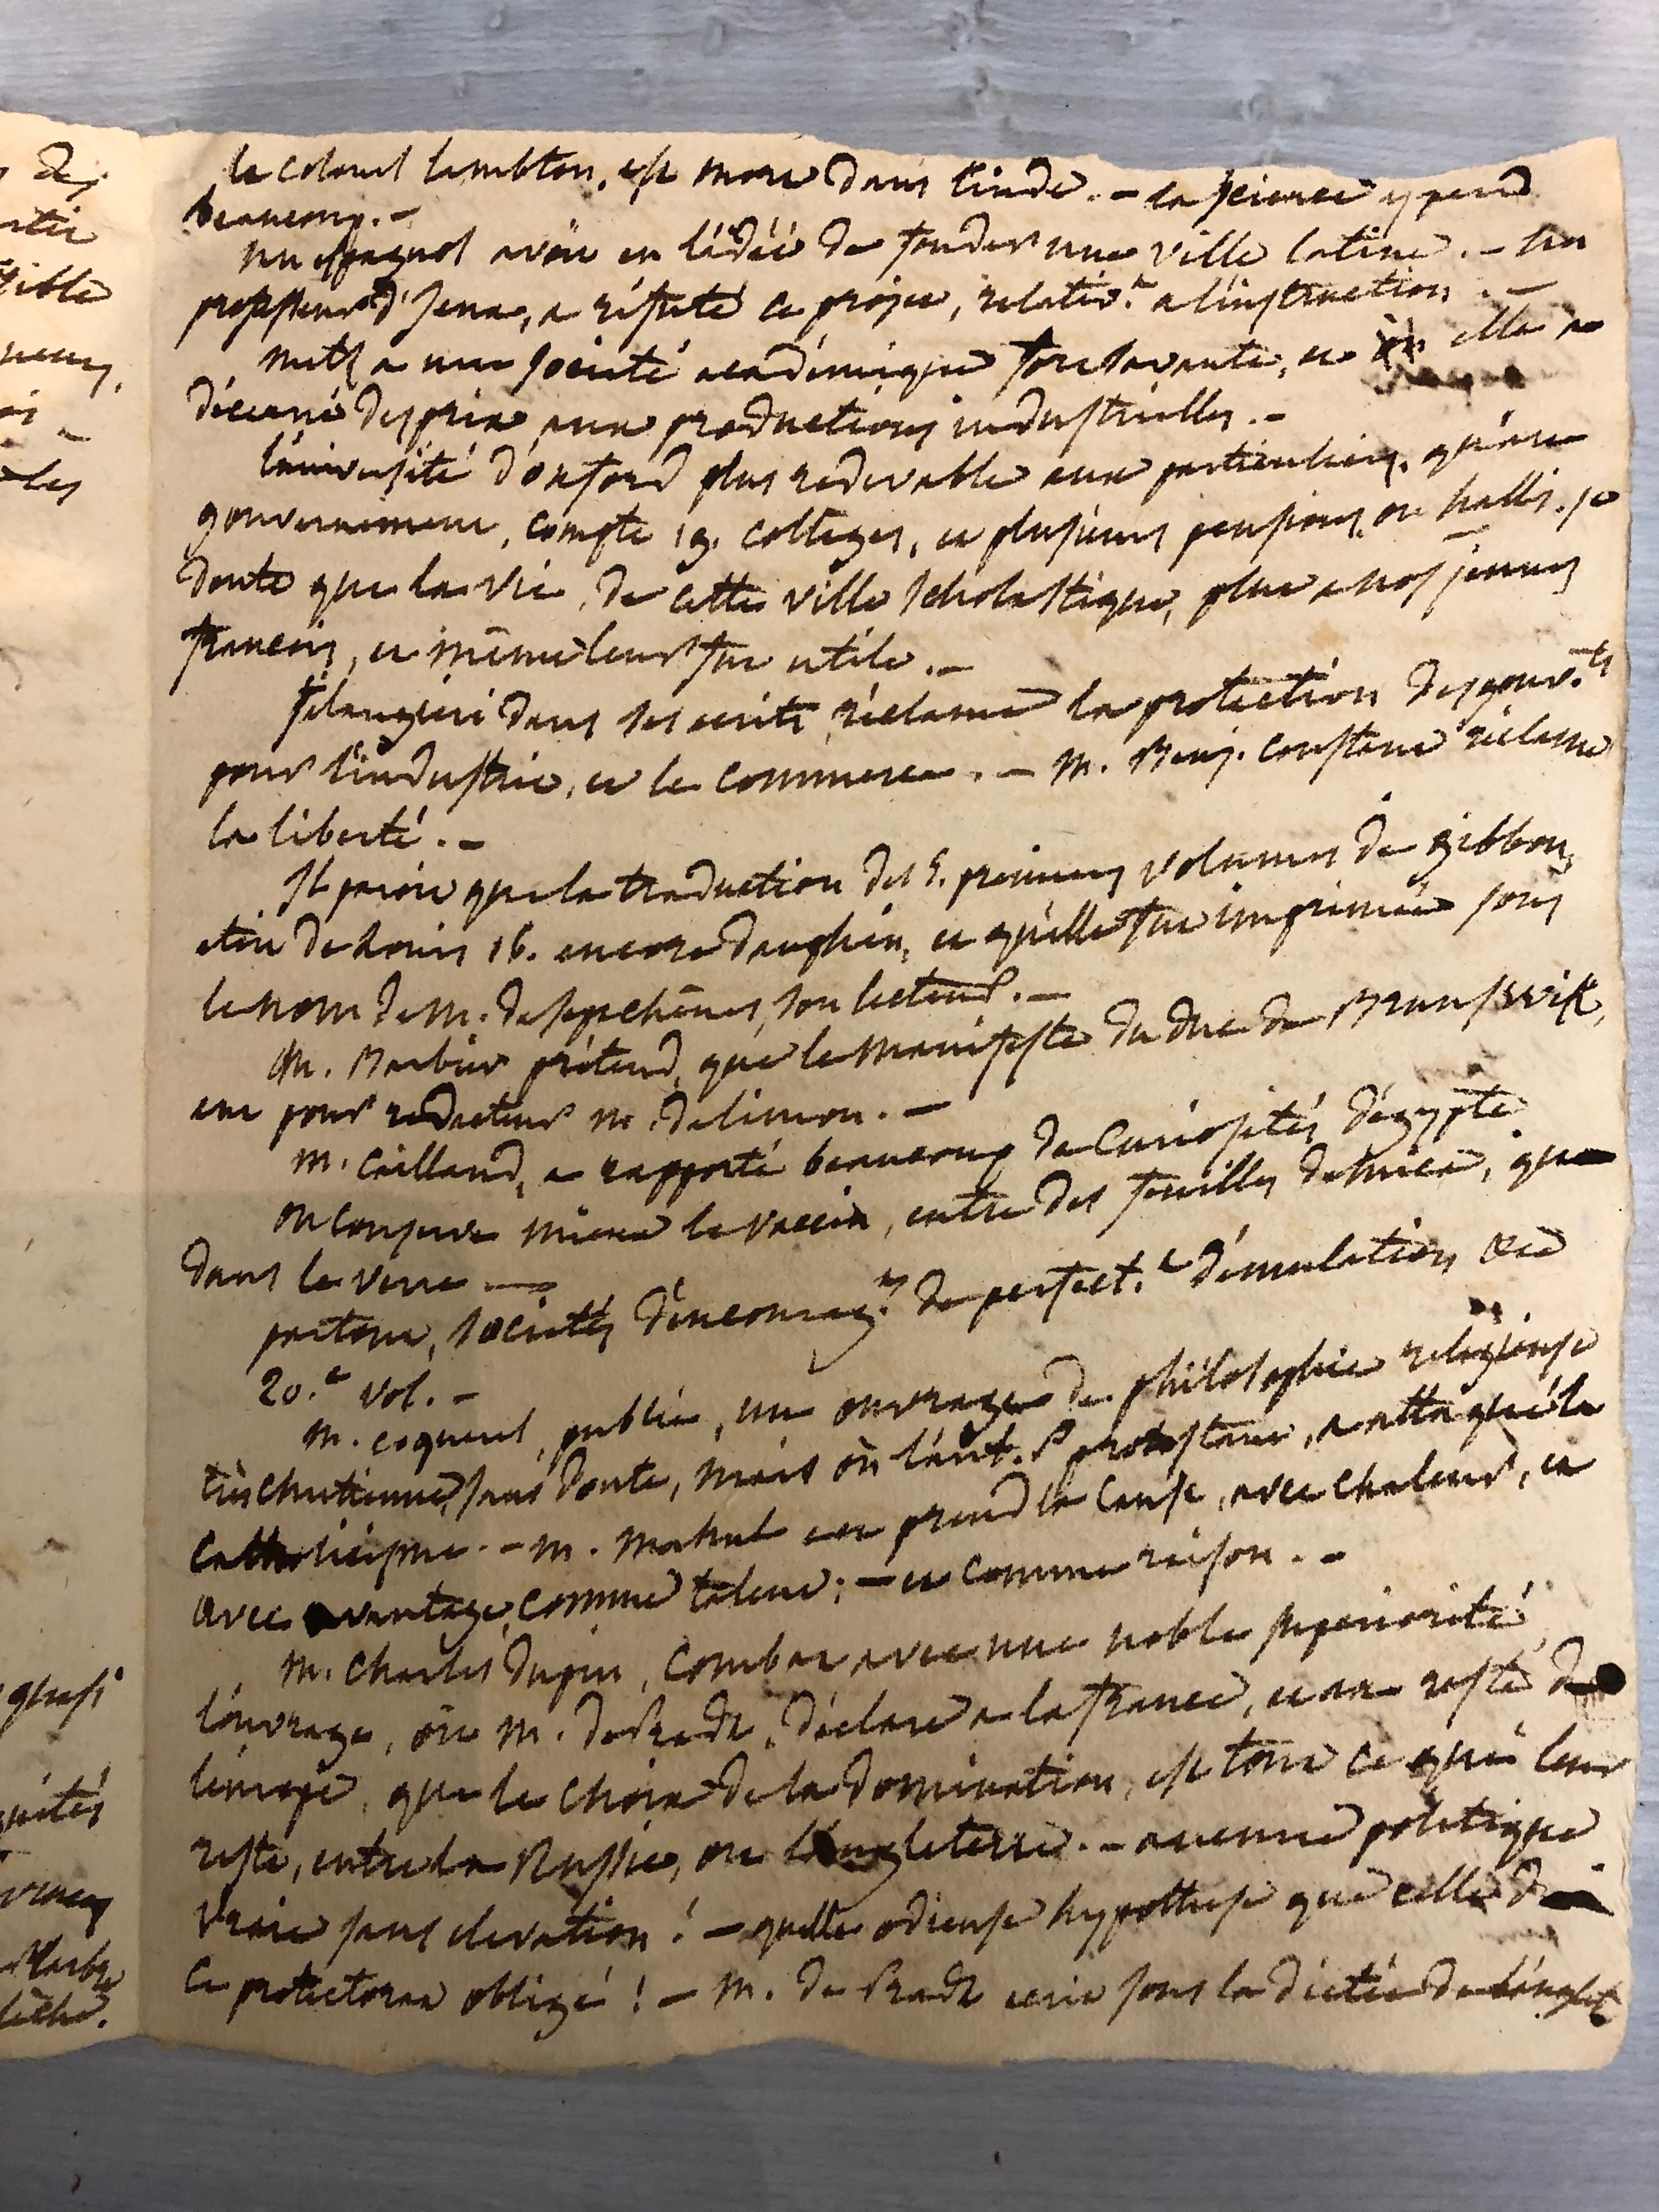 le colonel lambton, est mort dans l'inde. - la science y perd
beaucoup. -
un espagnol avoit eu l'idée de fonder une ville latine. - un
professeur d'Jena, a réfuté ce projet, relativ.t a l'instruction. -
metz a une société académique fort savante, et elle a
décerné des prix aux productions industrielles. -
l'université d'oxford plus redevable aux particuliers, qu'au
gouvernement, compte 19. colleges, et plusieurs pensions, ou halls. je
doute que la vie, de cette ville scholastique, plut a nos jeunes
francois, et même leur fut utile. -
filangieri dans ses ecrits, réclame la protection des gouv.ts
pour l'industrie, et le commerce. - M. Benj. constant réclame
la liberté. -
Il paroit que la traduction des 5. premiers volumes de gibbon,
etoit de Louis 16. encore dauphin, et qu'elle fut imprimée sous
le nom de M. de septchênes, son lecteur. -
M. Barbier prétend, que le manifeste du duc de Brunsswik,
eut pour redacteur M. de limon. -
M. cailland, a rapporté beaucoup de curiosités d'égypte
on conserve mieux le vaccin, entre des feuilles de mica, que
dans le verre -
partout, sociétés d'encourag.t de perfect.t d'émulation &c
20.e vol. -
M. coquerel, publie, un ouvrage de philosophie religieuse
très chrétienne, sans doute, mais où l'aut.r protestant, a attaqué le
catholicisme. - M. Mahul en prend la cause, avec chaleur, et
avec avantage, comme talent; - et comme raison. -
M. charles Dupin, combat avec une noble superiorité,
l'ouvrage, où M. de Pradt, déclare a la france, et au reste de
l'europe, que le choix de la domination, est tout ce qui leur
reste, entre la Russie, ou l'angleterre. - aucune politique
vraie sans elevation! - quelle odieuse hypothese que celle de
ce protectorat obligé! - M. de Pradt ecrit sous la dictée de l'anglet